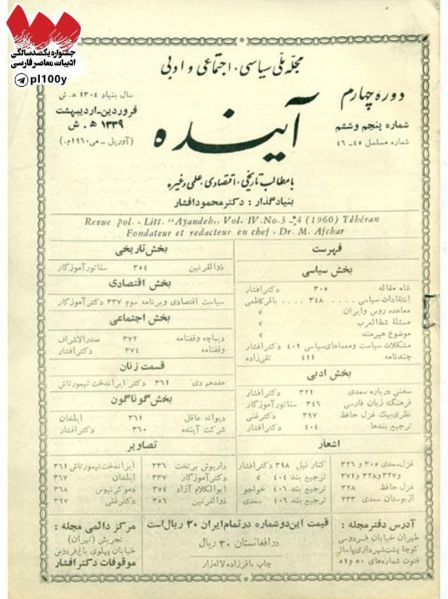 جشنواره یکصد سالگی
ادبیات معاصر فارسی
pl100y
مجله ملی سیاسی، اجتماعی و ادبی
دوره چهارم
شماره پنجم و ششم
شماره مسلسل ۴۵-۴۶
آینده
سال بنیاد ۱۳۰۴ ه. ش
فروردین-اردیبهشت
۱۳۳۹ ه. ش
(آوریل - می ۱۹۶۰ م.)
با مطالب تاریخی، اقتصادی، علمی وغیره
بنیادگذار: دکتر محمود افشار
Revue pol. - Litt. "Ayandeh", Vol. IV. No. 3-4 (1960) Téhéran
Fondateur et redacteur en chef, Dr. M. Afchar
فهرست
بخش سیاسی
شاه مقاله ۳۰۵ دکتر افشار
انتقادات سیاسی ۳۴۸ باقر کاظمی
معاهده روس وایران »
مسئلهٔ شط العرب »
موضوع هیرمند »
مشکلات سیاست ومعماهای سیاسی ۴۰۹ دکتر افشار
چندنامه ۴۱۱ تقی‌زاده
بخش ادبی
سخنی درباره سعدی ۳۲۱ دکتر افشار
فرهنگ زبان فارسی ۳۴۶ سناتور آموزگار
نظری بیک غزل حافظ ۳۹۷ دکتر غنی
ترجیع بندها ۴۰۴ دکتر افشار
بخش تاریخی
ذوالقرنین ۳۵۴ سناتور آموزگار
بخش اقتصادی
سیاست اقتصادی وبرنامه سوم ۳۳۷ دکتر آموزگار
بخش اجتماعی
دیباچه وقفنامه ۳۷۲ صدرالاشراف
وقفنامه ۳۷۴ دکتر افشار
قسمت زنان
هفدهم دی ۳۶۱ دکتر ایراندخت تیمورتاش
بخش گوناگون
دیوانه عاقل ۳۶۱ ایلخان
شرکت آینده ۳۶۰ دکتر افشار
اشعار
غزل سعدی ۳۰۵ و ۳۲۶
غزل حافظ ۳۲۸
از بوستان سعدی ۳۳۳
کنار نیل ۳۹۸ دکتر افشار
ترجیع بند ۴۰۴ »
ترجیع بند ۴۰۶ خواجو
ترجیع بند ۴۰۶ سعدی
تصاویر
داریوش بر تخت ۳۳۶
دکتر آموزگار ۳۳۷
ابوالکلام آزاد ۳۵۴
ذوالقرنین ۳۵۶
ایراندخت تیمورتاش ۳۶۱
ایلخان ۳۶۷
دکتر غنی ۳۹۷
آدرس دفتر مجله:
طهران خیابان فردوسی
کوچهٔ پشت شهرداری پاساژ
فتوت شماره‌های ۵۰ و ۵۱
قیمت این دو شماره در تمام ایران ۳۰ ریال است
در افغانستان ۳۰ ریال
چاپ باقرزاده لاله‌زار
مرکز دائمی مجله:
تجریش (تهران)
خیابان پهلوی باغ فردوس
موقوفات دکتر افشار